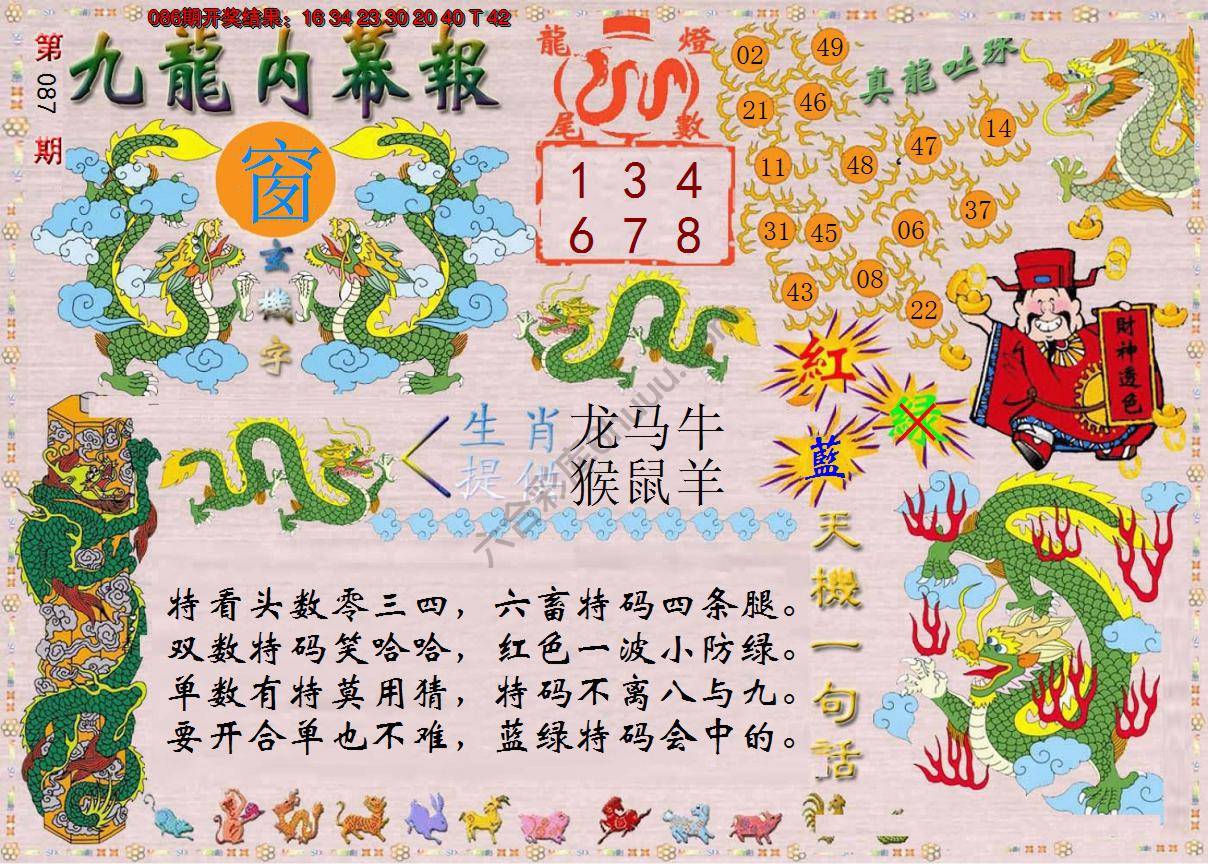 086期开奖结果：16 34 23 30 20 40 T 42
第087期
九龍内幕報
窗
玄機字
龍燈
尾數
1 3 4
6 7 8
真龍吐珠
02
49
21
46
11
48
47
14
31
45
06
37
43
08
22
財神透色
紅
绿
藍
生肖 龙马牛
提供 猴鼠羊
天機一句話
特看头数零三四，六畜特码四条腿。
双数特码笑哈哈，红色一波小防绿。
单数有特莫用猜，特码不离八与九。
要开合单也不难，蓝绿特码会中的。